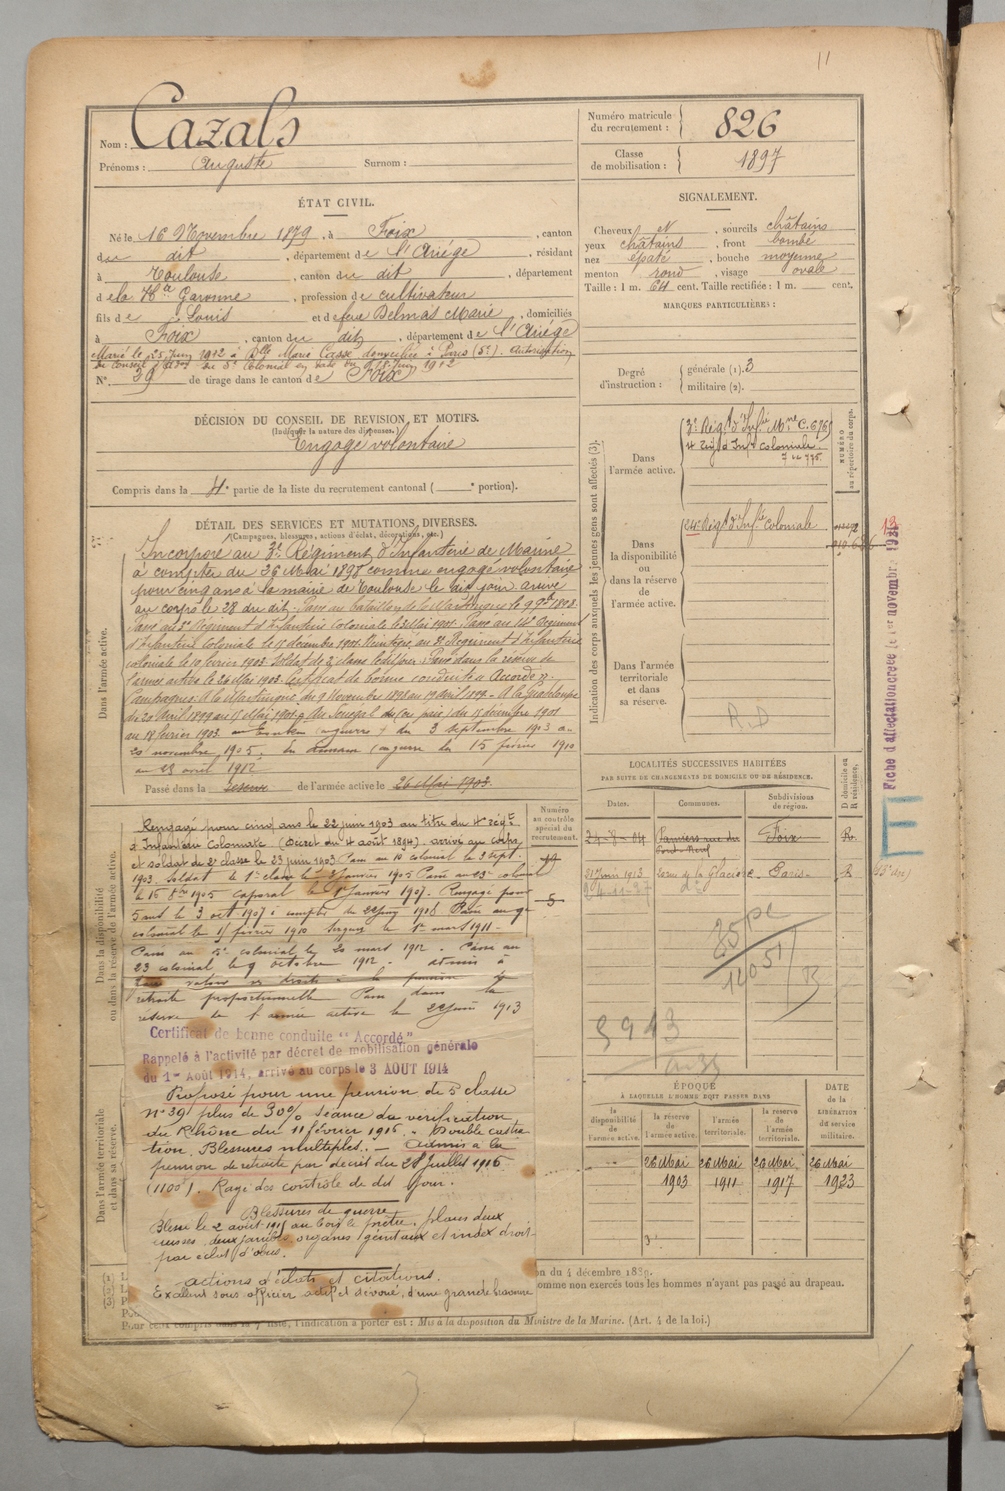 11
Nom : Cazals
Prénoms : Auguste Surnom :
Numéro matricule du recrutement : 826
Classe de mobilisation : 1897
ÉTAT CIVIL.
Né le 16 Novembre 1879, à Foix, canton
du dit, département de l'Ariège, résidant
à Toulouse, canton du dit, département
de la Hte Garonne, profession de cultivateur
fils de Louis et de feue Delmas Marie, domiciliés
à Foix, canton du dit, département de l'Ariège
Marié le 25 Juin 1912 à Delle Marie Casse domiciliée à Paris (5e). Autorisation
du Conseil d'Adon du 5e Colonial en date du Juin 1912
N° 39 de tirage dans le canton de Foix
SIGNALEMENT.
Cheveux N, sourcils châtains
yeux châtains, front bombé
nez épaté, bouche moyenne
menton rond, visage ovale
Taille : 1 m. 64 cent. Taille rectifiée : 1 m. cent.
MARQUES PARTICULIÈRES :
Degré d'instruction : générale (1). 3
militaire (2).
DÉCISION DU CONSEIL DE REVISION ET MOTIFS.
(Indiquer la nature des dispenses.)
Engagé volontaire
Compris dans la 4e partie de la liste du recrutement cantonal ( e portion).
DÉTAIL DES SERVICES ET MUTATIONS DIVERSES.
(Campagnes, blessures, actions d'éclat, décorations, etc.)
Dans l'armée active.
Incorporé au 3e Régiment d'Infanterie de Marine
à compter du 26 Mai 1898 comme engagé volontaire
pour cinq ans à la mairie de Toulouse le dit jour arrivé
au corps le 28 du dit. Passé au bataillon de la Martinique le 9 9bre 1898.
Passé au 3e Régiment d'Infanterie Coloniale le 2 Mai 1901. Passé au 14e Régiment
d'Infanterie Coloniale le 15 décembre 1901. Réintégré au 3e Régiment d'Infanterie
coloniale le 19 février 1903. Soldat de 2e classe le dit jour. Passé dans la réserve de
l'armée active le 26 Mai 1903. Certificat de bonne conduite "Accordé".
Campagnes : A la Martinique du 9 Novembre 1898 au 19 avril 1899. A la Guadeloupe
du 20 Avril 1899 au Mai 1901. Au Sénégal du 15 décembre 1901
au 18 février 1903. au Tonkin (guerre) du 3 septembre 1903 au
20 novembre 1905. en guerre du 15 février 1910
au 23 avril 1912
Passé dans la réserve de l'armée active le 26 Mai 1903.
Indication des corps auxquels les jeunes gens sont affectés (3).
NUMÉRO au répertoire du corps.
Dans l'armée active.
3e Régt d'Infie Mne C. 6769
4 régt d'Infie coloniale
Dans la disponibilité ou dans la réserve de l'armée active.
24e Régt d'Infie Coloniale
Dans l'armée territoriale et dans sa réserve.
R.D
Fiche d'affectation créée le 1er novembr. 192
12
LOCALITÉS SUCCESSIVES HABITÉES
PAR SUITE DE CHANGEMENTS DE DOMICILE OU DE RÉSIDENCE.
Dates. Communes. Subdivisions de région. D domicile ou R résidence.
24-8-04 Pamiers rue du Pont-Neuf Foix R.
21 Juin 1913 rue de la Glacière Paris R
5943
Dans la disponibilité ou dans la réserve de l'armée active.
Numéro au contrôle spécial du recrutement.
Rengagé pour cinq ans le 22 juin 1903 au titre du 4e régt
d'Infanterie Coloniale (Décret du 4 août 1894) arrivé au corps
et soldat de 2e classe le 23 juin 1903. Passé au 10 colonial le 3 sept.
1903. Soldat de 1e classe le 1er Janvier 1905 Passé au 23e colonial
le 16 8bre 1905 caporal le 1er Janvier 1907. Rengagé pour
5 ans le 3 oct 1907 à compter du 22 Juin 1908 Passé au 9e
colonial le 15 février 1910 Sergent le 1er mars 1911 -
Passé au 5e colonial le 20 mars 1912. Passé au
23 colonial le 9 octobre 1912. Admis à
faire valoir ses droits à la pension de
retraite proportionnelle Passé dans la
réserve de l'armée active le 22 Juin 1913
Certificat de bonne conduite "Accordé"
Rappelé à l'activité par décret de mobilisation générale
du 1er Août 1914, arrivé au corps le 3 AOUT 1914
Dans l'armée territoriale et dans sa réserve.
Proposé pour une pension de 5e classe
n° 39 plus de 30% Séance de vérification
du Rhône du 11 février 1916. Double castra-
tion. Blessures multiples. - Admis à la
pension de retraite par décret du 28 Juillet 1916
(1100f). Rayé des contrôles du dit jour.
Blessures de guerre
Blessé le 2 août 1915 au Bois le prêtre. plaies deux
cuisses deux jambes organes génitaux et index droit
par éclat d'obus.
actions d'éclats et citations.
Excellent sous officier actif et dévoué, d'une grande bravoure
ÉPOQUE
À LAQUELLE L'HOMME DOIT PASSER DANS
la disponibilité de l'armée active. la réserve de l'armée active. l'armée territoriale. la réserve de l'armée territoriale.
DATE de la LIBÉRATION du service militaire.
26 Mai 1903 26 Mai 1911 26 Mai 1917 26 Mai 1923
on du 4 décembre 1889.
omme non exercés tous les hommes n'ayant pas passé au drapeau.
Pour ceux compris dans la 7e liste, l'indication à porter est : Mis à la disposition du Ministre de la Marine. (Art. 4 de la loi.)